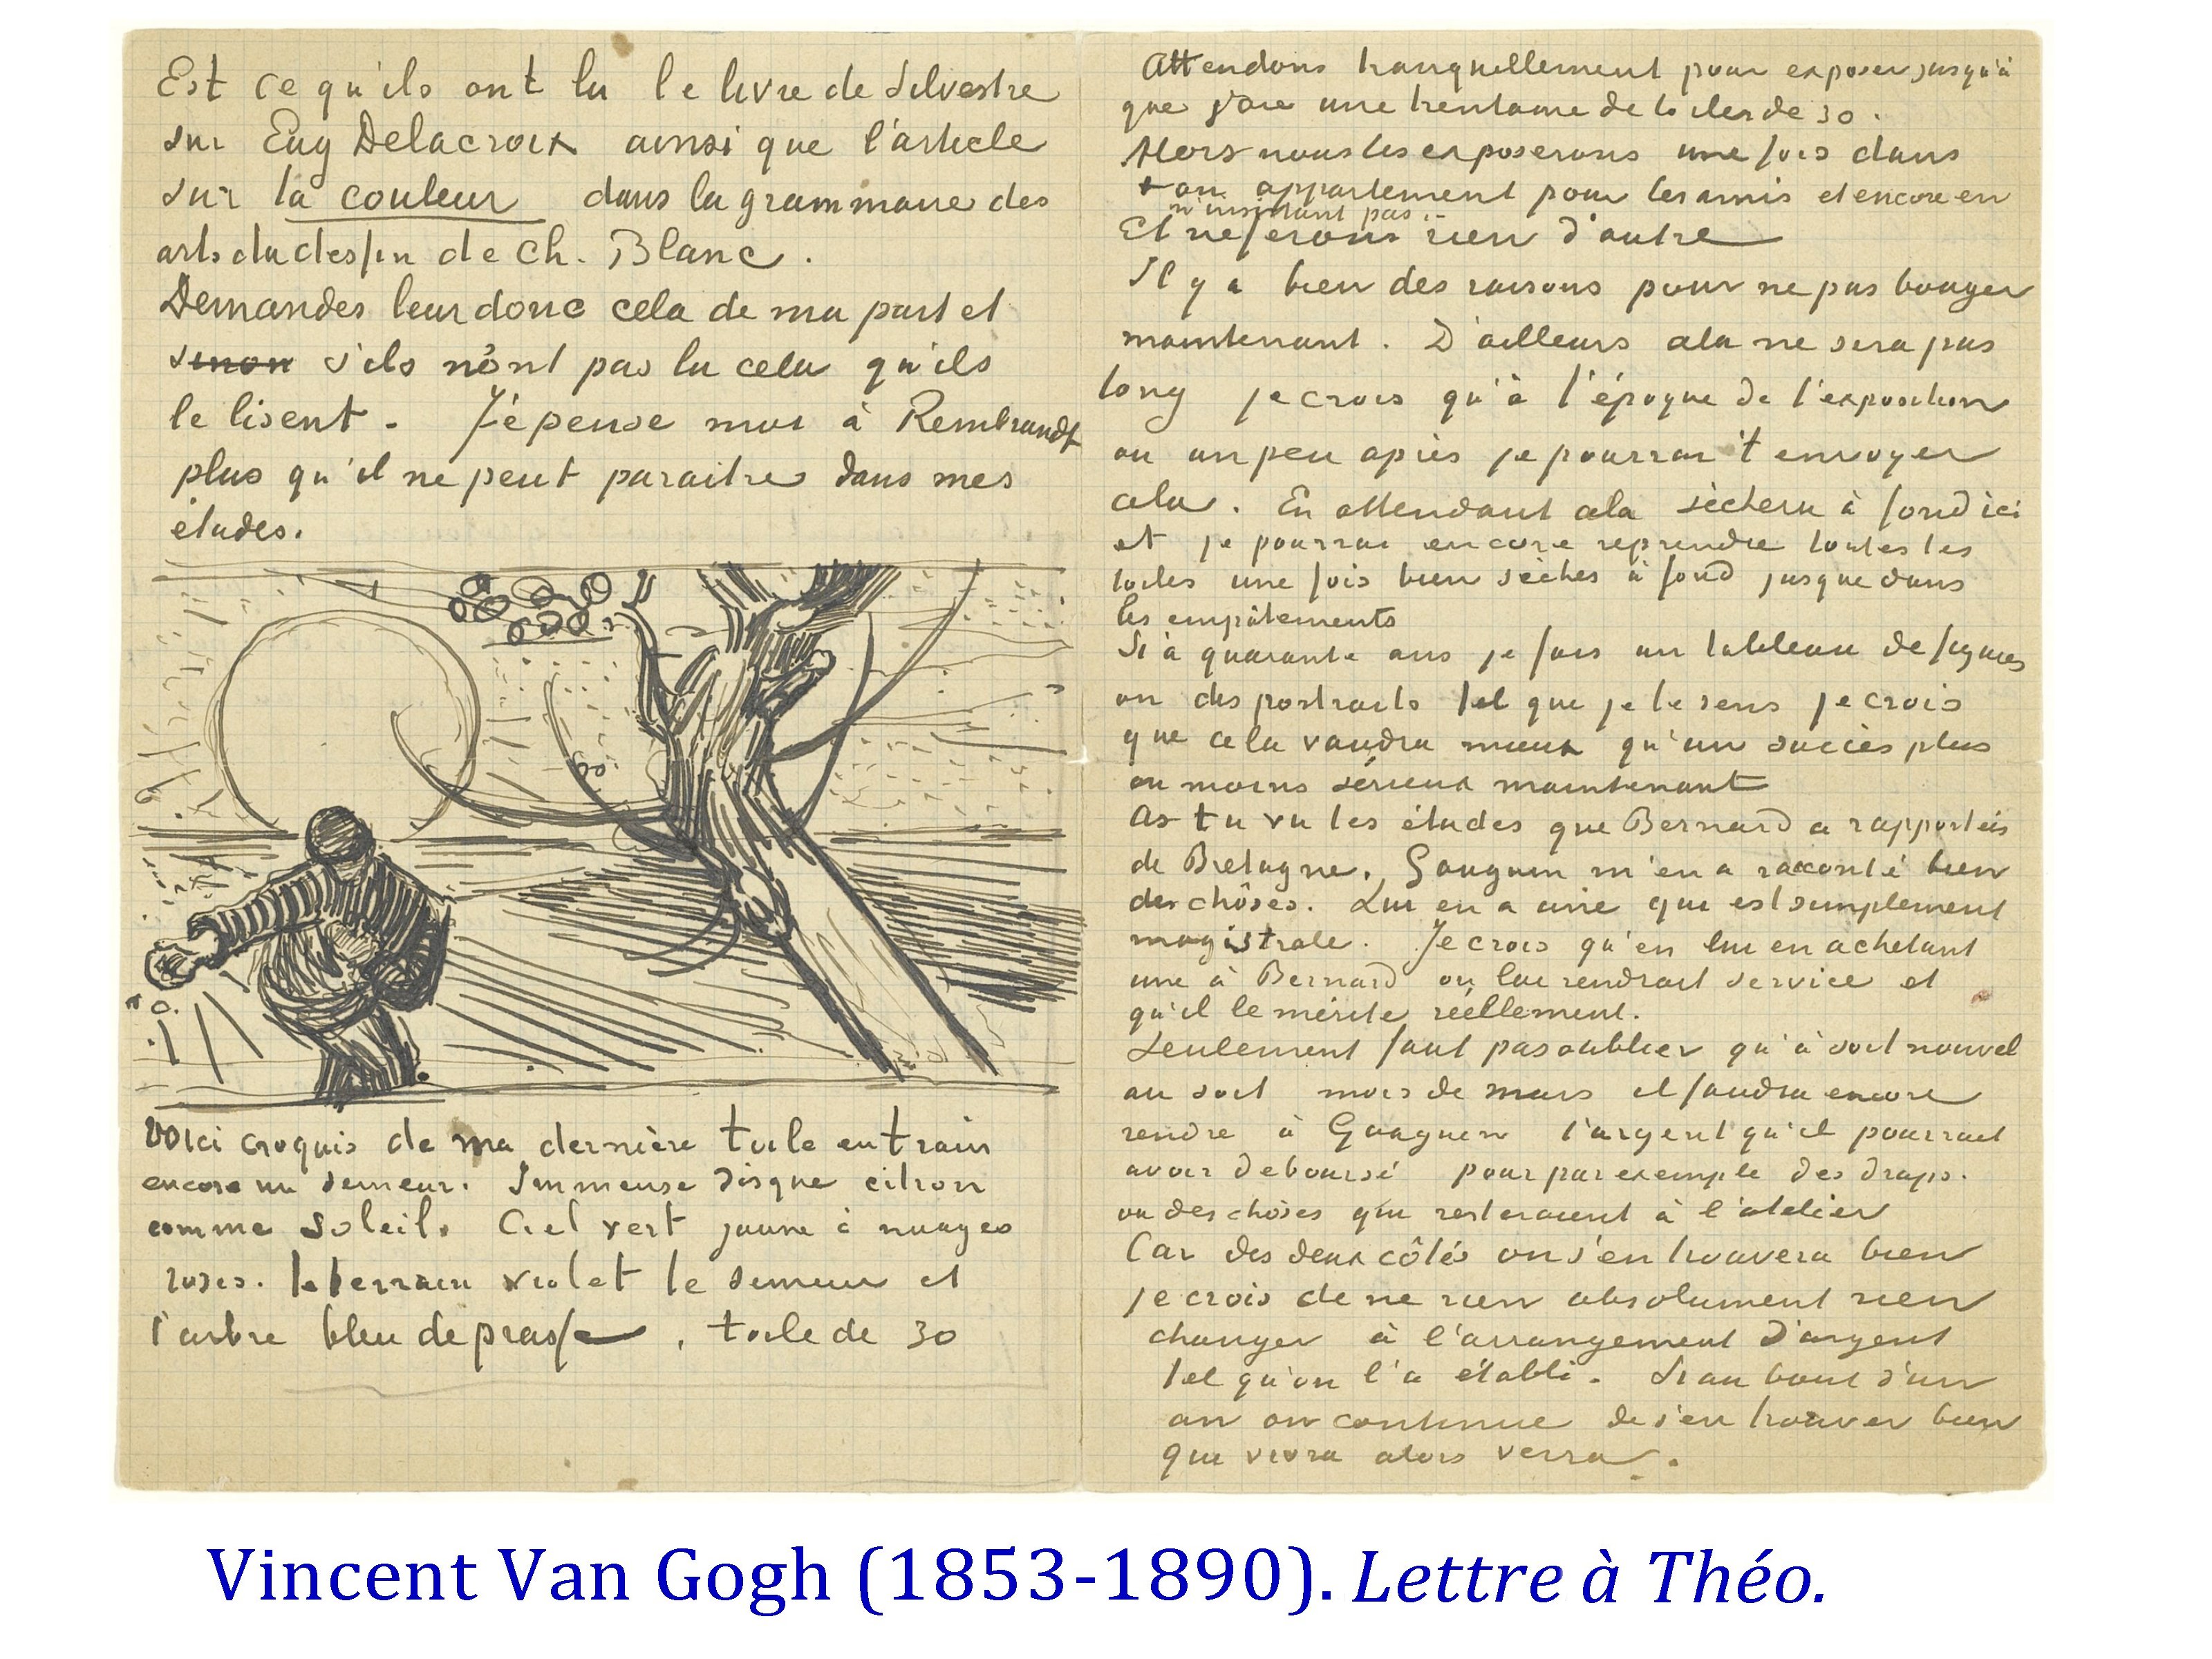 Est ce qu'ils ont lu le livre de Silvestre
sur Eug Delacroix ainsi que l'article
sur la couleur dans la grammaire des
arts du dessin de Ch. Blanc.
Demandes leur donc cela de ma part et
sinon s'ils n'ont pas lu cela qu'ils
le lisent. Je pense moi à Rembrandt
plus qu'il ne peut paraitre dans mes
études.
Voici croquis de ma dernière toile en train
encore un semeur. Immense disque citron
comme soleil. Ciel vert jaune à nuages
roses. le terrain violet le semeur et
l'arbre bleu de prusse. toile de 30
Attendons tranquillement pour exposer jusqu'à
que j'aie une trentaine de toiles de 30.
Alors nous les exposerons une fois dans
ton appartement pour les amis et encore en
n'insistant pas.
Et ne ferons rien d'autre
Il y a bien des raisons pour ne pas bouger
maintenant. D'ailleurs cela ne sera pas
long je crois qu'à l'époque de l'exposition
ou un peu après je pourrai t'envoyer
cela. En attendant cela sèchera à fond ici
et je pourrai encore reprendre toutes les
toiles une fois bien sèches à fond jusque dans
les empâtements
Si à quarante ans je fais un tableau de figures
ou des portraits tel que je le sens je crois
que cela vaudra mieux qu'un succès plus
ou moins sérieux maintenant
As tu vu les études que Bernard a rapportées
de Bretagne. Gauguin m'en a raconté bien
des chôses. Lui en a une qui est simplement
magistrale. Je crois qu'en lui en achetant
une à Bernard on lui rendrait service et
qu'il le mérite réellement.
Seulement faut pas oublier qu'à soit nouvel
an soit mois de mars il faudra encore
rendre à Gauguin l'argent qu'il pourrait
avoir deboursé pour par exemple des draps.
ou des chôses qui resteraient à l'atelier
Car des deux côtés on s'en trouvera bien
je crois de ne rien absolument rien
changer à l'arrangement d'argent
tel qu'on l'a établi. Si au bout d'un
an on continue de s'en trouver bien
qui vivra alors verra.
Vincent Van Gogh (1853-1890). Lettre à Théo.